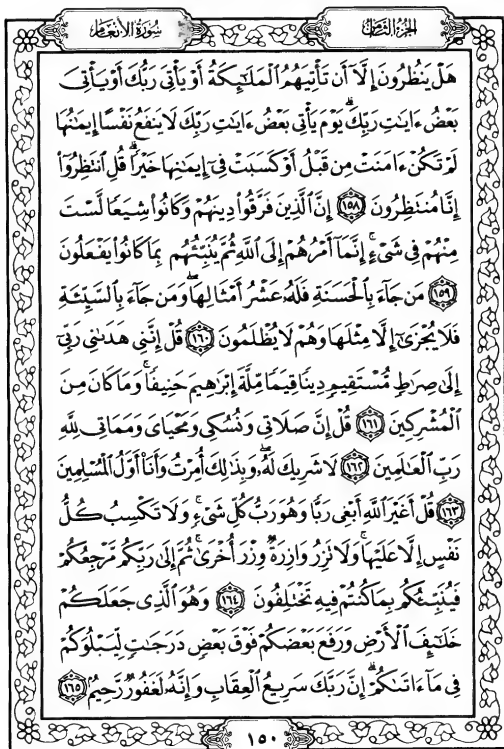 سُورَةُ الأَنْعَام الجُزْءُ الثَّامِن
هَلْ يَنظُرُونَ إِلَّآ أَن تَأْتِيَهُمُ ٱلْمَلَـٰٓئِكَةُ أَوْ يَأْتِىَ رَبُّكَ أَوْ يَأْتِىَ
بَعْضُ ءَايَـٰتِ رَبِّكَ ۗ يَوْمَ يَأْتِى بَعْضُ ءَايَـٰتِ رَبِّكَ لَا يَنفَعُ نَفْسًا إِيمَـٰنُهَا
لَمْ تَكُنْ ءَامَنَتْ مِن قَبْلُ أَوْ كَسَبَتْ فِىٓ إِيمَـٰنِهَا خَيْرًا ۗ قُلِ ٱنتَظِرُوٓا۟
إِنَّا مُنتَظِرُونَ ١٥٨ إِنَّ ٱلَّذِينَ فَرَّقُوا۟ دِينَهُمْ وَكَانُوا۟ شِيَعًا لَّسْتَ
مِنْهُمْ فِى شَىْءٍ ۚ إِنَّمَآ أَمْرُهُمْ إِلَى ٱللَّهِ ثُمَّ يُنَبِّئُهُم بِمَا كَانُوا۟ يَفْعَلُونَ
١٥٩ مَن جَآءَ بِٱلْحَسَنَةِ فَلَهُۥ عَشْرُ أَمْثَالِهَا ۖ وَمَن جَآءَ بِٱلسَّيِّئَةِ
فَلَا يُجْزَىٰٓ إِلَّا مِثْلَهَا وَهُمْ لَا يُظْلَمُونَ ١٦٠ قُلْ إِنَّنِى هَدَىٰنِى رَبِّىٓ
إِلَىٰ صِرَٰطٍ مُّسْتَقِيمٍ دِينًا قِيَمًا مِّلَّةَ إِبْرَٰهِيمَ حَنِيفًا ۚ وَمَا كَانَ مِنَ
ٱلْمُشْرِكِينَ ١٦١ قُلْ إِنَّ صَلَاتِى وَنُسُكِى وَمَحْيَاىَ وَمَمَاتِى لِلَّهِ
رَبِّ ٱلْعَـٰلَمِينَ ١٦٢ لَا شَرِيكَ لَهُۥ ۖ وَبِذَٰلِكَ أُمِرْتُ وَأَنَا۠ أَوَّلُ ٱلْمُسْلِمِينَ
١٦٣ قُلْ أَغَيْرَ ٱللَّهِ أَبْغِى رَبًّا وَهُوَ رَبُّ كُلِّ شَىْءٍ ۚ وَلَا تَكْسِبُ كُلُّ
نَفْسٍ إِلَّا عَلَيْهَا ۚ وَلَا تَزِرُ وَازِرَةٌ وِزْرَ أُخْرَىٰ ۚ ثُمَّ إِلَىٰ رَبِّكُم مَّرْجِعُكُمْ
فَيُنَبِّئُكُم بِمَا كُنتُمْ فِيهِ تَخْتَلِفُونَ ١٦٤ وَهُوَ ٱلَّذِى جَعَلَكُمْ
خَلَـٰٓئِفَ ٱلْأَرْضِ وَرَفَعَ بَعْضَكُمْ فَوْقَ بَعْضٍ دَرَجَـٰتٍ لِّيَبْلُوَكُمْ
فِى مَآ ءَاتَىٰكُمْ ۗ إِنَّ رَبَّكَ سَرِيعُ ٱلْعِقَابِ وَإِنَّهُۥ لَغَفُورٌ رَّحِيمٌۢ ١٦٥
١٥٠